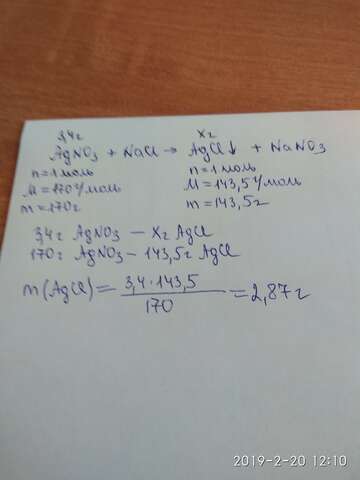 3,4г xг
AgNO₃ + NaCl → AgCl↓ + NaNO₃
n=1моль n=1моль
M=170г/моль M=143,5г/моль
m=170г m=143,5г
3,4г AgNO₃ – xг AgCl
170г AgNO₃ – 143,5г AgCl
m(AgCl) = 3,4·143,5 / 170 = 2,87г
2019-2-20 12:10